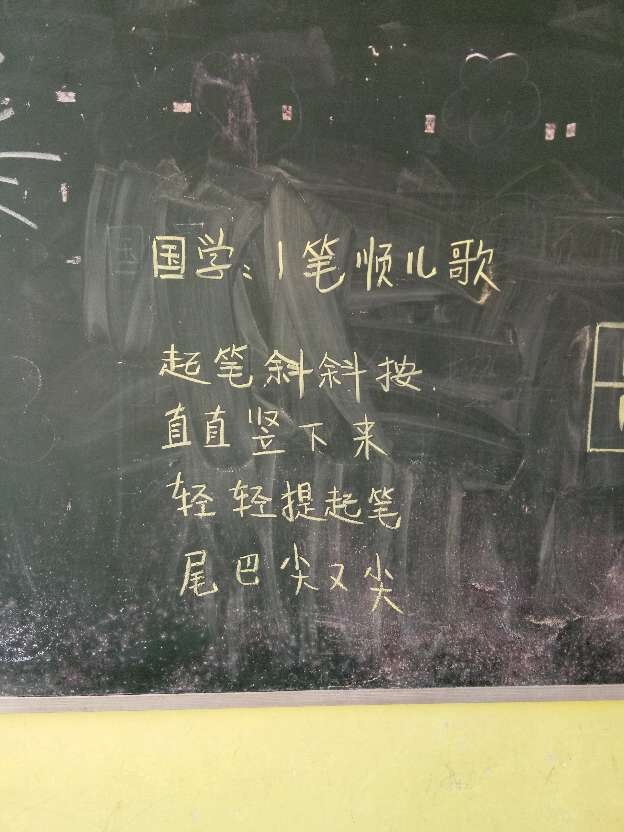 国学:丨笔顺儿歌
起笔斜斜按
直直竖下来
轻轻提起笔
尾巴尖又尖